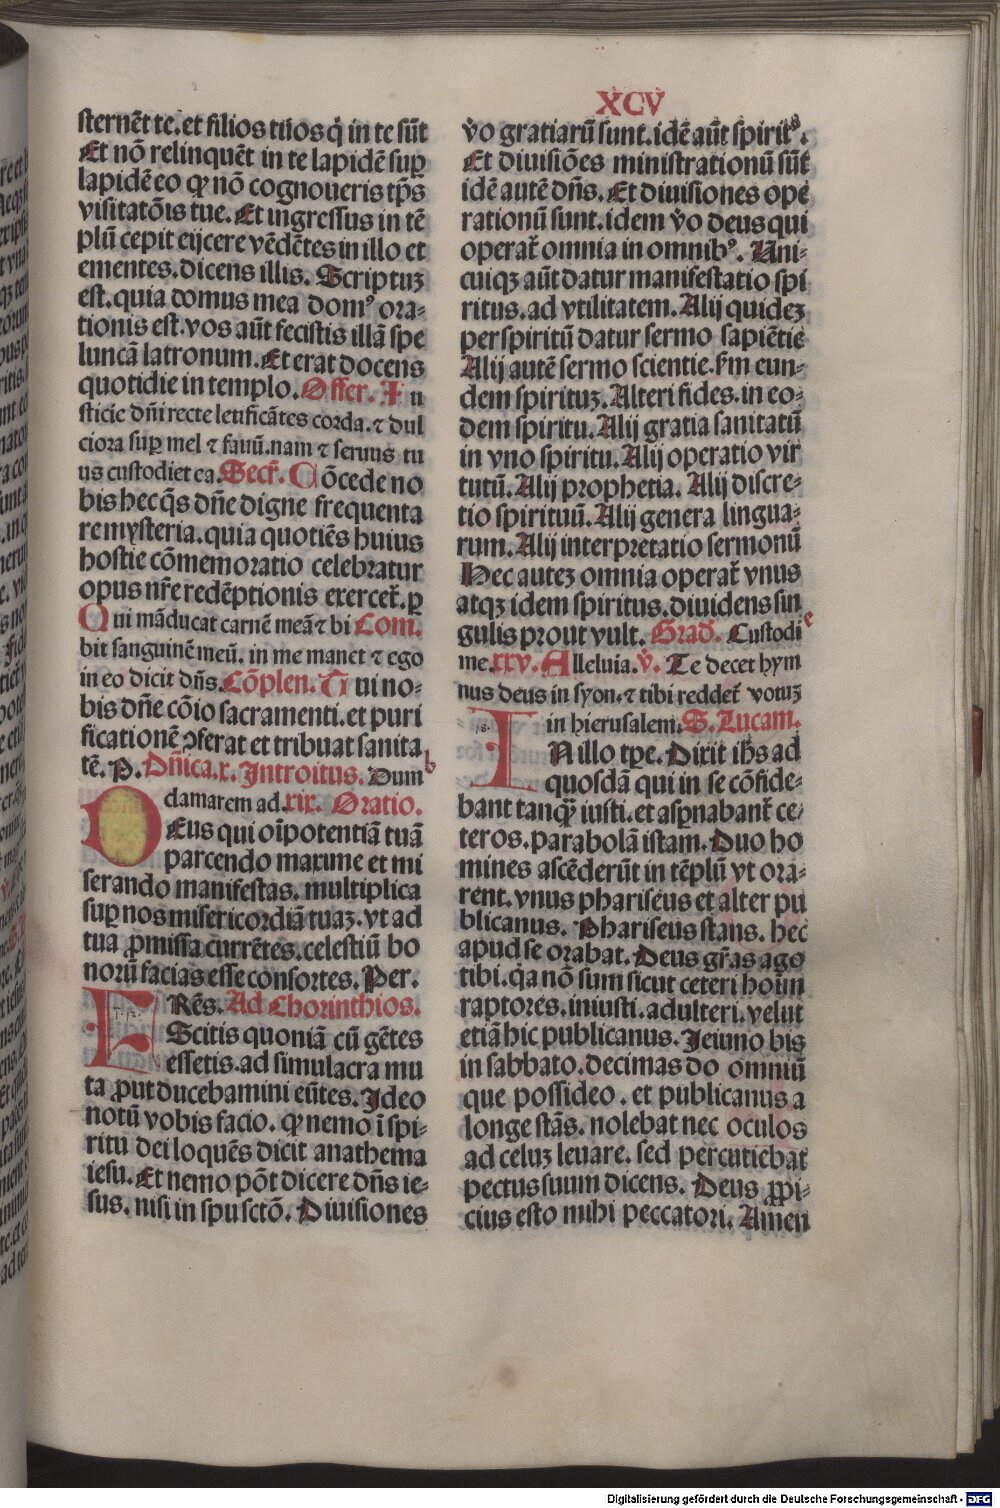 XCV
sternēt te. et filios tuos q̇ in te sūt
Et nō relinquēt in te lapidē suꝑ
lapidē eo ꝙ nō cognoueris tp̄s
visitatōis tue. Et ingressus in tē
plū cepit eijcere vēdētes in illo et
ementes. dicens illis. Scriptuꝫ
est. quia domus mea domꝰ ora⸗
tionis est. vos aūt fecistis illā spe
luncā latronum. Et erat docens
quotidie in templo. Offer. Iu
sticie dn̄i recte letificātes corda. ⁊ dul
ciora suꝑ mel ⁊ fauū. nam ⁊ seruus tu
us custodiet ea. Secr̄. Cōcede no
bis hec q̄s dn̄e digne frequenta
re mysteria. quia quotiēs huius
hostie cōmemoratio celebratur
opus nr̄e redēptionis exercet̄. ꝑ
Qui māducat carnē meā ⁊ bi Com.
bit sanguinē meū. in me manet ⁊ ego
in eo dicit dn̄s. Cōplen. Tui no⸗
bis dn̄e cōio sacramenti. et puri
ficationē ꝯferat et tribuat sanita
tē. P. Dn̄ica. x. Introitus. Dum b
clamarem ad. xix. Oratio.
Deus qui oīpotentiā tuā
parcendo maxume et mi
serando manifestas. multiplica
suꝑ nos misericordiā tuaꝫ. vt ad
tua ꝓmissa currētes. celestiū bo
norū facias esse consortes. Per.
FRēs. Ad Chorinthios.
Scitis quoniā cū gētes
essetis. ad simulacra mu
ta ꝓut ducebamini eūtes. Ideo
notū vobis facio. ꝙ nemo ī spi⸗
ritu dei loquēs dicit anathema
iesu. Et nemo pōt dicere dn̄s ie⸗
sus. nisi in spu sctō. Diuisiones
v̊o gratiarū sunt. idē aūt spiritꝰ.
Et diuisiōes ministrationū sūt
idē autē dn̄s. Et diuisiones ope
rationū sunt. idem v̊o deus qui
operat̄ omnia in omnibꝰ. Uni⸗
cuiqꝫ aūt datur manifestatio spi
ritus. ad vtilitatem. Alij quideꝫ
per spiritū datur sermo sapiētie
Alij autē sermo scientie. ẜm eun⸗
dem spirituꝫ. Alteri fides. in eo⸗
dem spiritu. Alij gratia sanitatū
in vno spiritu. Alij operatio vir
tutū. Alij prophetia. Alij discre⸗
tio spirituū. Alij genera lingua⸗
rum. Alij interpretatio sermonū
Hec auteꝫ omnia operat̄ vnus
atqꝫ idem spiritus. diuidens sin
gulis prout vult. Grad̄. Custodi e
me. xxv. Alleluia. V̄. Te decet hym
nus deus in syon. ⁊ tibi reddet̄ votuꝫ
in hierusalem. S. Lucam.
IN illo tꝑe. Dixit ih̄s ad
quosdā qui in se cōfide⸗
bant tanqꝫ̄ iusti. et asꝑnabant̄ ce⸗
teros. parabolā istam. Duo ho
mines ascēderūt in tēplū vt ora⸗
rent. vnus phariseus et alter pu
blicanus. Phariseus stans. hec
apud se orabat. Deus gr̄as ago
tibi. q̇a nō sum sicut ceteri hoīm
raptores. iniusti. adulteri. velut
etiā hic publicanus. Ieiuno bis
in sabbato. decimas do omniū
que possideo. et publicanus a
longe stās. nolebat nec oculos
ad celuꝫ leuare. sed percutiebat
pectus suum dicens. Deus ꝓpi⸗
cius esto mihi peccatori. Amen
Digitalisierung gefördert durch die Deutsche Forschungsgemeinschaft - DFG